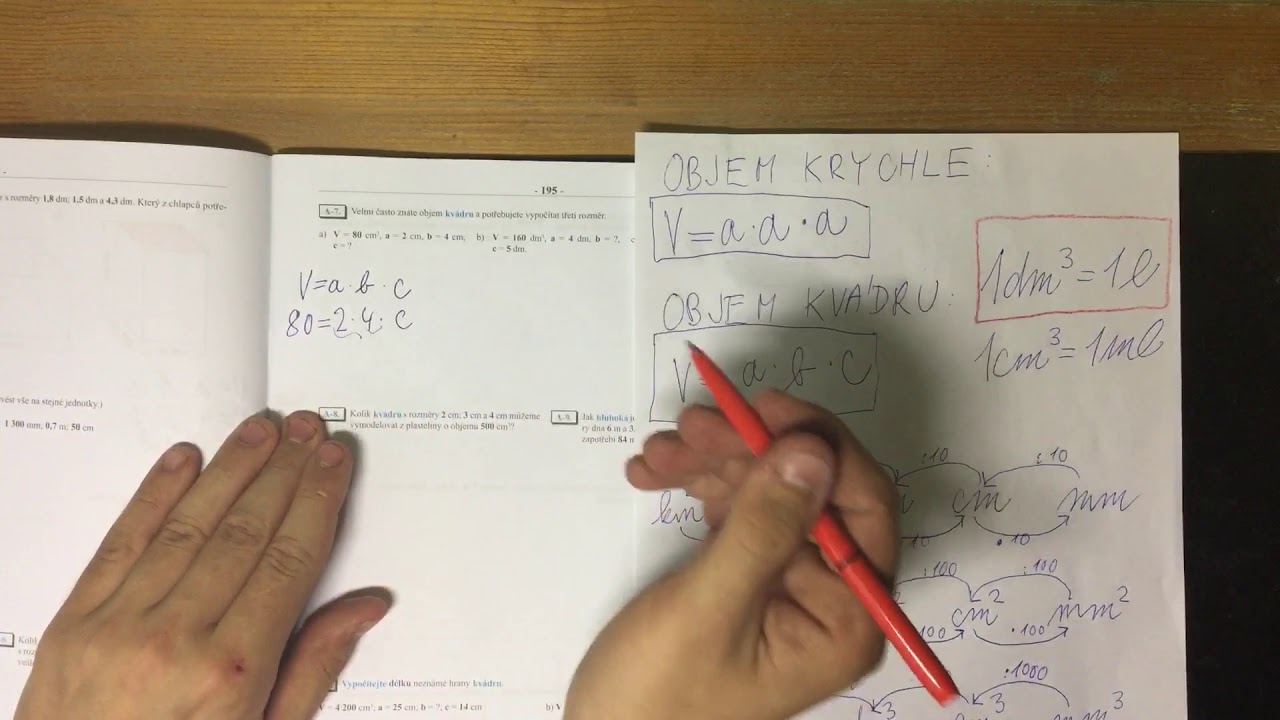 s rozměry 1,8 dm; 1,5 dm a 4,3 dm. Který z chlapců potře-
vést vše na stejné jednotky.)
1 300 mm; 0,7 m; 50 cm
- 195 -
A-7. Velmi často znáte objem kvádru a potřebujete vypočítat třetí rozměr.
a) V = 80 cm³, a = 2 cm, b = 4 cm, b) V = 160 dm³, a = 4 dm, b = ?, c
c = ? c = 5 dm.
V=a·b·c
80=2·4·c
A-8. Kolik kvádrů s rozměry 2 cm; 3 cm a 4 cm můžeme
vymodelovat z plastelíny o objemu 500 cm³?
A-9. Jak hluboká
ry dna 6 m a 3
zapotřebí 84
Vypočítejte délku neznámé hrany kvádru.
V = 4 200 cm³, a = 25 cm; b = ?, c = 14 cm b) V
OBJEM KRYCHLE:
V=a·a·a
OBJEM KVÁDRU:
V= a·b·c
1dm³=1l
1cm³=1ml
:10 :10
km cm mm
10 ·10
:100 :100
cm² mm²
100 ·100
:1000
3 mm³